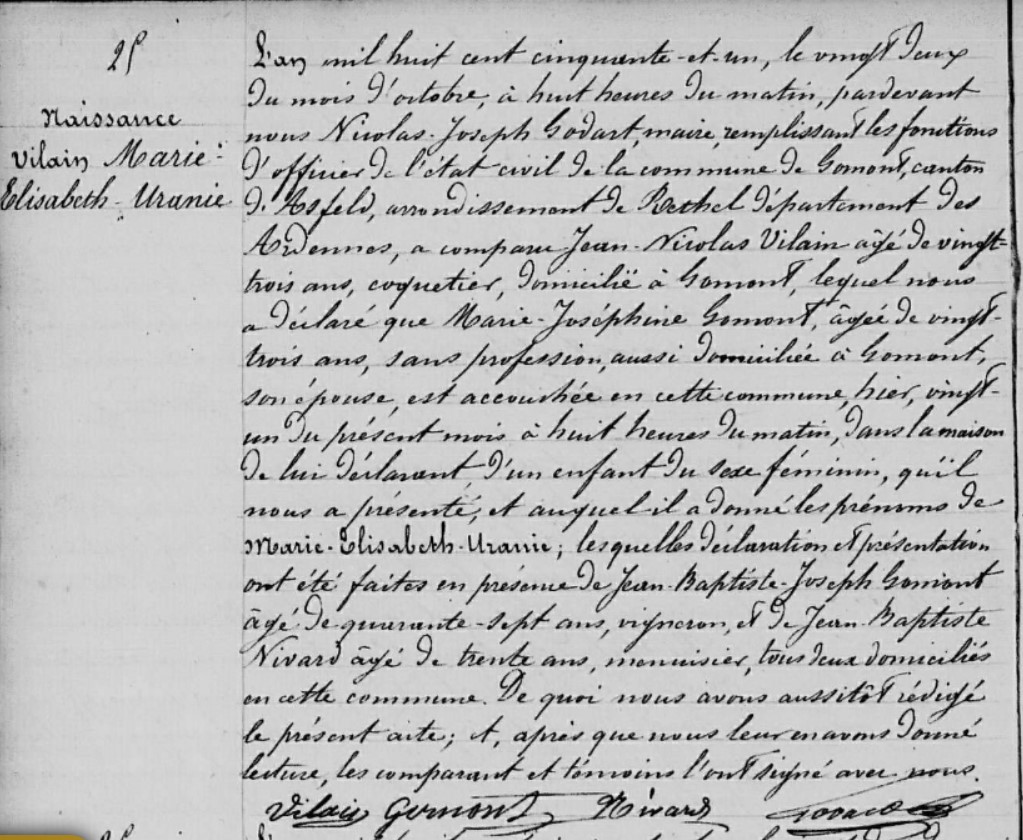 25
Naissance
Vilain Marie-
Elisabeth-Uranie
L'an mil huit cent cinquante-et-un, le vingt deux
du mois d'octobre, à huit heures du matin, pardevant
nous Nicolas-Joseph Godart, maire, remplissant les fonctions
d'officier de l'état civil de la commune de Gomont, canton
d'Asfeld, arrondissement de Rethel département des
Ardennes, a comparu Jean-Nicolas Vilain âgé de vingt-
trois ans, coquetier, domicilié à Gomont, lequel nous
a déclaré que Marie-Joséphine Gomont, âgée de vingt-
trois ans, sans profession, aussi domiciliée à Gomont,
son épouse, est accouchée en cette commune, hier, vingt-
un du présent mois à huit heures du matin, dans la maison
de lui déclarant d'un enfant du sexe féminin, qu'il
nous a présenté, et auquel il a donné les prénoms de
Marie-Elisabeth-Uranie; lesquelles déclaration et présentation
ont été faites en présence de Jean-Baptiste-Joseph Gomont
âgé de quarante-sept ans, vigneron, et de Jean-Baptiste
Nivard âgé de trente ans, menuisier, tous deux domiciliés
en cette commune. De quoi nous avons aussitôt rédigé
le présent acte; et, après que nous leur en avons donné
lecture, les comparant et témoins l'ont signé avec nous.
Vilain Gomont Nivard Godart